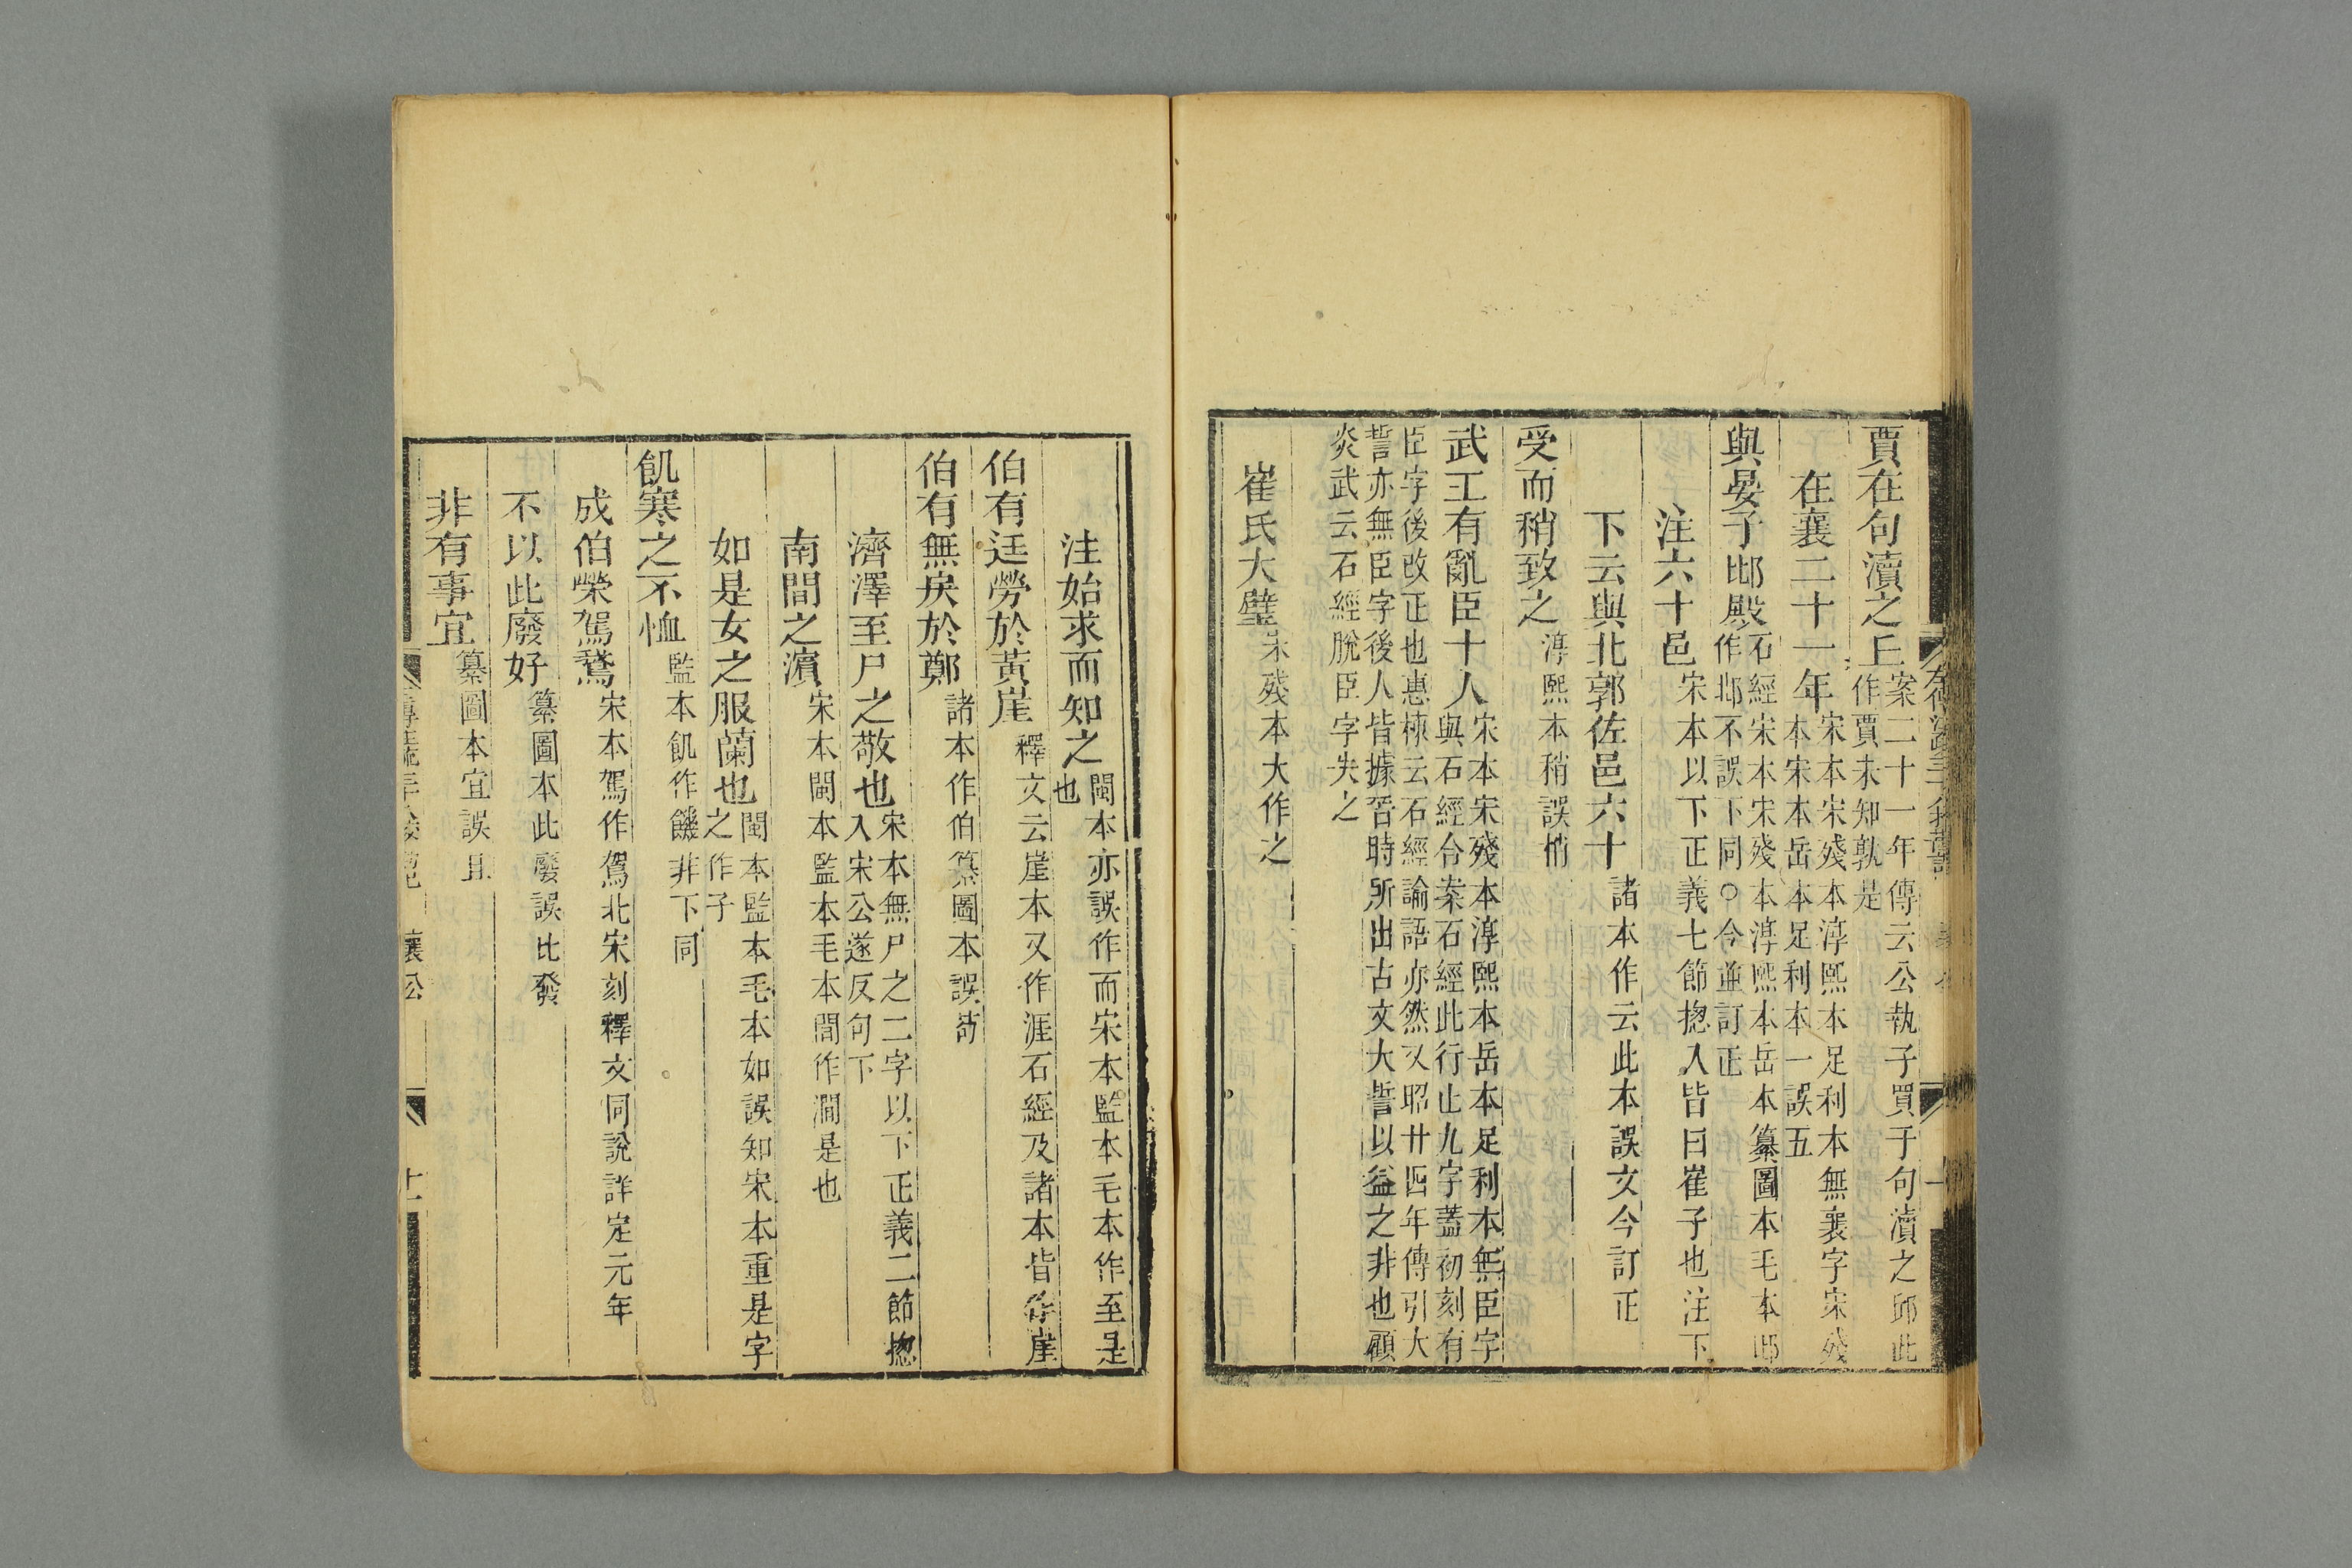 賈在句瀆之上案二十一年傳云公執子買于句瀆之邱此
作賈未知孰是
在襄二十一年宋本宋殘本淳熙本足利本無襄字宋殘
本宋本岳本足利本一誤五
與晏子邶殿石經宋本宋殘本淳熙本岳本纂圖本毛本邶
作邶不誤下同○今並訂正
注六十邑宋本以下正義七節揔入皆曰崔子也注下
下云與北郭佐邑六十諸本作云此本誤文今訂正
受而稍致之淳熙本稍誤梢
武王有亂臣十人宋本宋殘本淳熙本岳本足利本無臣字
與石經合案石經此行止九字蓋初刻有
臣字後改正也惠棟云石經論語亦然又昭廿四年傳引大
誓亦無臣字後人皆據晉時所出古文大誓以益之非也顧
炎武云石經脫臣字失之
崔氏大璧宋殘本大作之
注始求而知之閩本亦誤作而宋本監本毛本作至是
也
伯有廷勞於黃崖釋文云崖本又作涯石經及諸本皆作崖
伯有無戾於鄭諸本作伯纂圖本誤
濟澤至尸之敬也宋本無尸之二字以下正義二節揔
入宋公遂反句下
南間之濵宋本閩本監本毛本間作澗是也
如是女之服蘭也閩本監本毛本如誤知宋本重是字
之作子
飢寒之不恤監本飢作饑非下同
成伯榮駕鵞宋本駕作鴐北宋刻釋文同說詳定元年
不以此廢好纂圖本此廢誤比發
非有事宜纂圖本宜誤且
襄公
十一